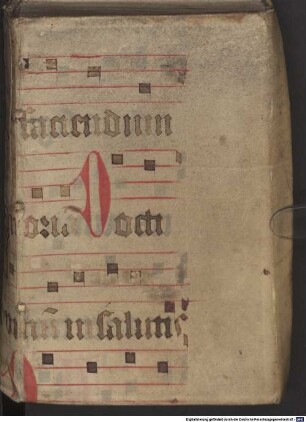 faciendum
oria Docti
in salutis
Digitalisierung gefördert durch die Deutsche Forschungsgemeinschaft - DFG